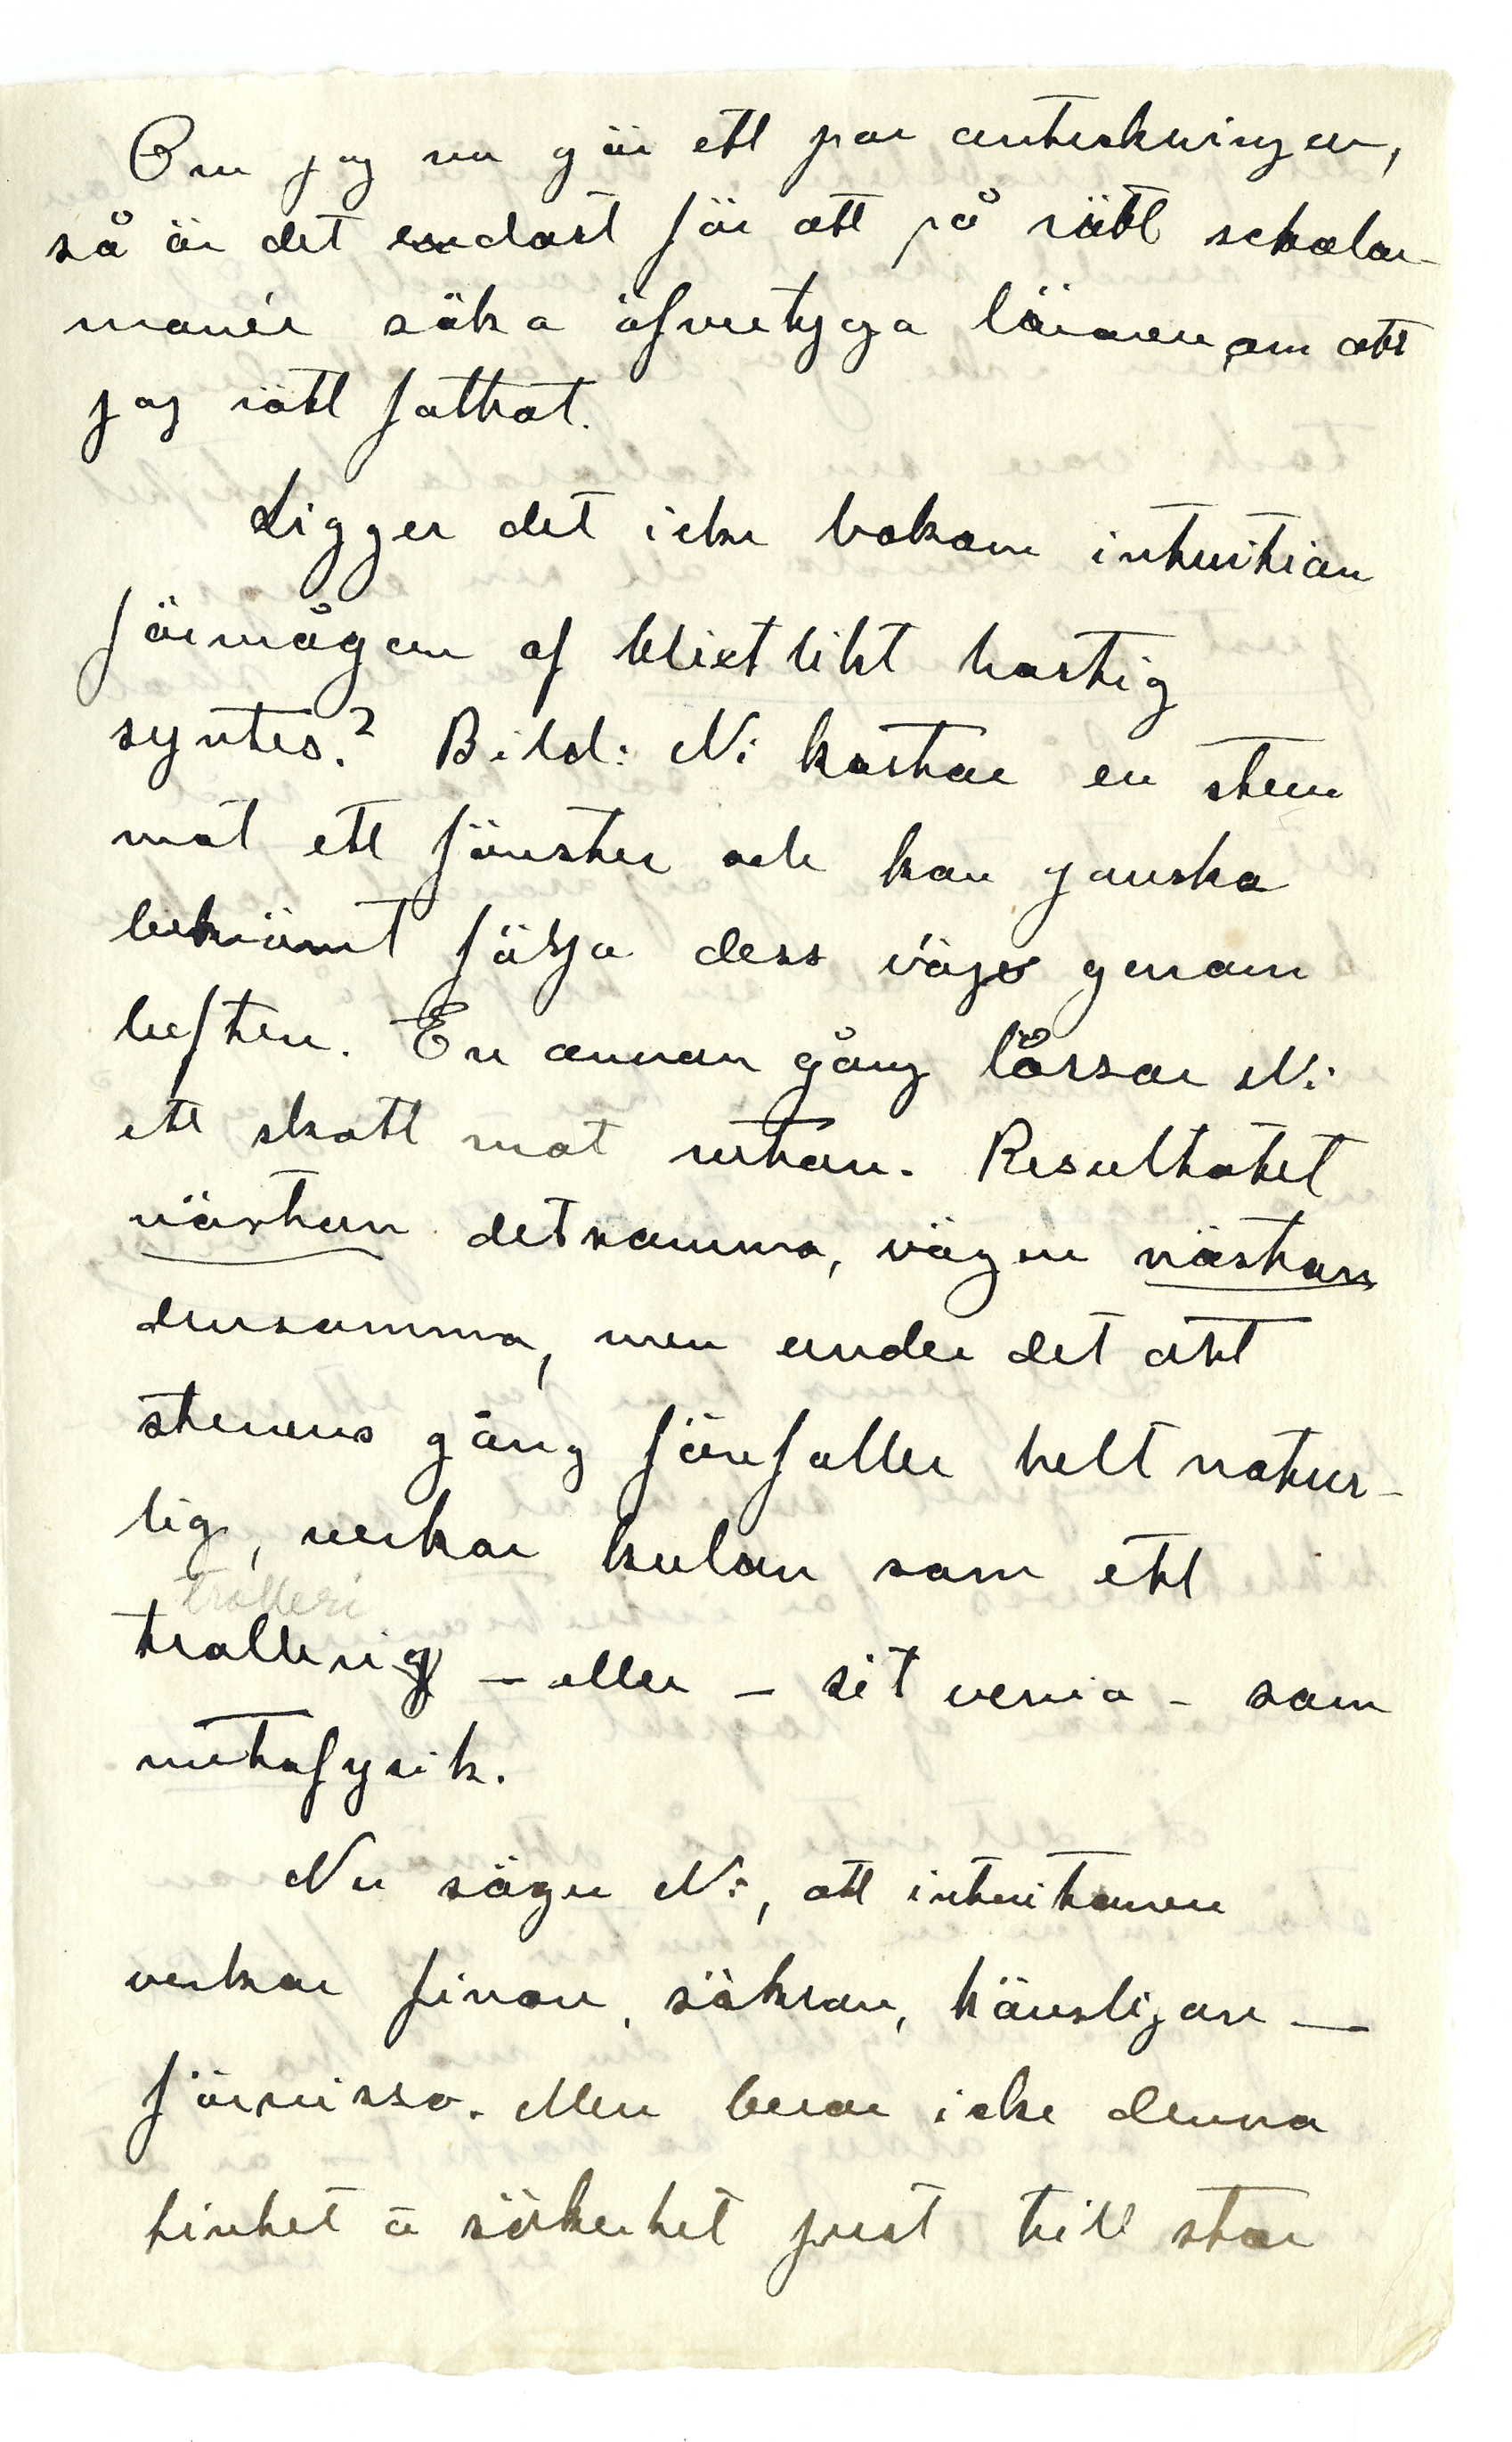 Om jag nu gör ett par anteckningar,
så är det endast för att på rätt scholar-
manér söka öfvertyga läraren om att
jag rätt fattat.
Ligger det icke bakom intuition
förmågan af blixtlikt hastig
syntes? Bild: Ni kastar en sten
mot ett fönster och kan ganska
bekvämt följa dess väg genom
luften. En annan gång lössar Ni
ett skott mot rutan. Resultatet
nästan detsamma, vägen nästan
densamma, men under det att
stenens gång förefaller helt natur-
lig, verkar kulan som ett
trolleri
trolleri – eller – sit venia – som
metafysik.
Nu säger Ni, att intuitionen
verkar finare, säkrare, känsligare –
förvisso. Men beror icke denna
finhet o säkerhet just till stor